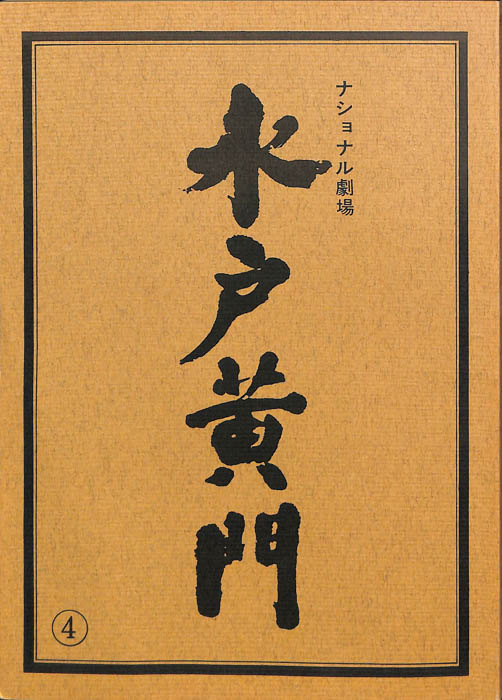 ナショナル劇場
水戸黄門
④